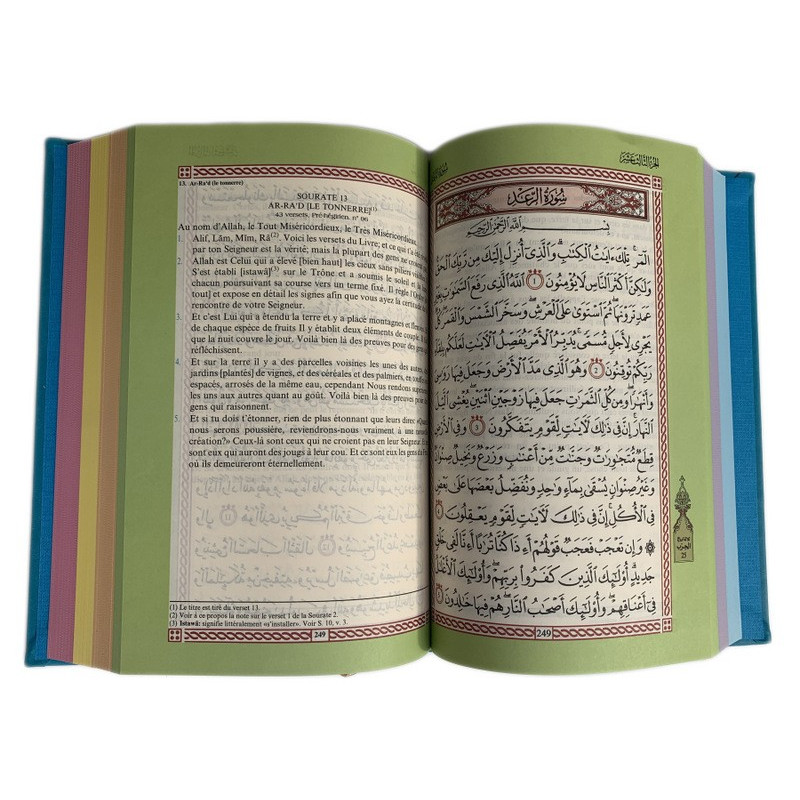 13. Ar-Ra'd (le tonnerre)
SOURATE 13
AR-RA'D [LE TONNERRE](1)
43 versets. Pré-hégirien. n° 96
Au nom d'Allah, le Tout Miséricordieux, le Très Miséricordieux.
1. Alif, Lâm, Mîm, Râ(2). Voici les versets du Livre; et ce qui t'a
par ton Seigneur est la vérité; mais la plupart des gens ne
2. Allah est Celui qui a élevé [bien haut] les cieux sans piliers
S'est établi [istawâ](3) sur le Trône et a soumis le soleil et la
chacun poursuivant sa course vers un terme fixé. Il règle l'Ordre
tout] et expose en détail les signes afin que vous ayez la certitude
rencontre de votre Seigneur.
3. Et c'est Lui qui a étendu la terre et y a placé montagnes et
de chaque espèce de fruits Il y établit deux éléments de couple. Il
que la nuit couvre le jour. Voilà bien là des preuves pour des gens
réfléchissent.
4. Et sur la terre il y a des parcelles voisines les unes des autres,
jardins [plantés] de vignes, et des céréales et des palmiers, en
espacés, arrosés de la même eau, cependant Nous rendons
les uns aux autres quant au goût. Voilà bien là des preuves pour
gens qui raisonnent.
5. Et si tu dois t'étonner, rien de plus étonnant que leurs dires: «Quand
nous serons poussière, reviendrons-nous vraiment à une
création?» Ceux-là sont ceux qui ne croient pas en leur Seigneur. Et
sont ceux qui auront des jougs à leur cou. Et ce sont eux les gens du
où ils demeureront éternellement.
(1) Le titre est tiré du verset 13.
(2) Voir à ce propos la note sur le verset 1 de la Sourate 2.
(3) Istawâ: signifie littéralement «s'installer». Voir S. 10, v. 3.
249
الجزء الثالث عشر
سُورَةُ الرَّعْدِ
بِسْمِ اللَّهِ الرَّحْمَٰنِ الرَّحِيمِ
الٓمٓر ۚ تِلْكَ ءَايَٰتُ الْكِتَٰبِ ۗ وَالَّذِىٓ أُنزِلَ إِلَيْكَ مِن رَّبِّكَ الْحَقُّ
وَلَٰكِنَّ أَكْثَرَ النَّاسِ لَا يُؤْمِنُونَ ١ اللَّهُ الَّذِى رَفَعَ السَّمَٰوَٰتِ بِغَيْرِ
عَمَدٍ تَرَوْنَهَا ۖ ثُمَّ اسْتَوَىٰ عَلَى الْعَرْشِ ۖ وَسَخَّرَ الشَّمْسَ وَالْقَمَرَ ۖ كُلٌّ
يَجْرِى لِأَجَلٍ مُّسَمًّى ۚ يُدَبِّرُ الْأَمْرَ يُفَصِّلُ الْءَايَٰتِ لَعَلَّكُم بِلِقَآءِ
رَبِّكُمْ تُوقِنُونَ ٢ وَهُوَ الَّذِى مَدَّ الْأَرْضَ وَجَعَلَ فِيهَا رَوَٰسِىَ
وَأَنْهَٰرًا ۖ وَمِن كُلِّ الثَّمَرَٰتِ جَعَلَ فِيهَا زَوْجَيْنِ اثْنَيْنِ ۖ يُغْشِى الَّيْلَ
النَّهَارَ ۚ إِنَّ فِى ذَٰلِكَ لَءَايَٰتٍ لِّقَوْمٍ يَتَفَكَّرُونَ ٣ وَفِى الْأَرْضِ
قِطَعٌ مُّتَجَٰوِرَٰتٌ وَجَنَّٰتٌ مِّنْ أَعْنَٰبٍ وَزَرْعٌ وَنَخِيلٌ صِنْوَانٌ
وَغَيْرُ صِنْوَانٍ يُسْقَىٰ بِمَآءٍ وَٰحِدٍ وَنُفَضِّلُ بَعْضَهَا عَلَىٰ بَعْضٍ
فِى الْأُكُلِ ۚ إِنَّ فِى ذَٰلِكَ لَءَايَٰتٍ لِّقَوْمٍ يَعْقِلُونَ ٤
۞ وَإِن تَعْجَبْ فَعَجَبٌ قَوْلُهُمْ أَءِذَا كُنَّا تُرَٰبًا أَءِنَّا لَفِى خَلْقٍ
جَدِيدٍ ۗ أُولَٰٓئِكَ الَّذِينَ كَفَرُوا بِرَبِّهِمْ ۖ وَأُولَٰٓئِكَ الْأَغْلَٰلُ
فِىٓ أَعْنَاقِهِمْ ۖ وَأُولَٰٓئِكَ أَصْحَٰبُ النَّارِ ۖ هُمْ فِيهَا خَٰلِدُونَ ٥
الحزب
25
249